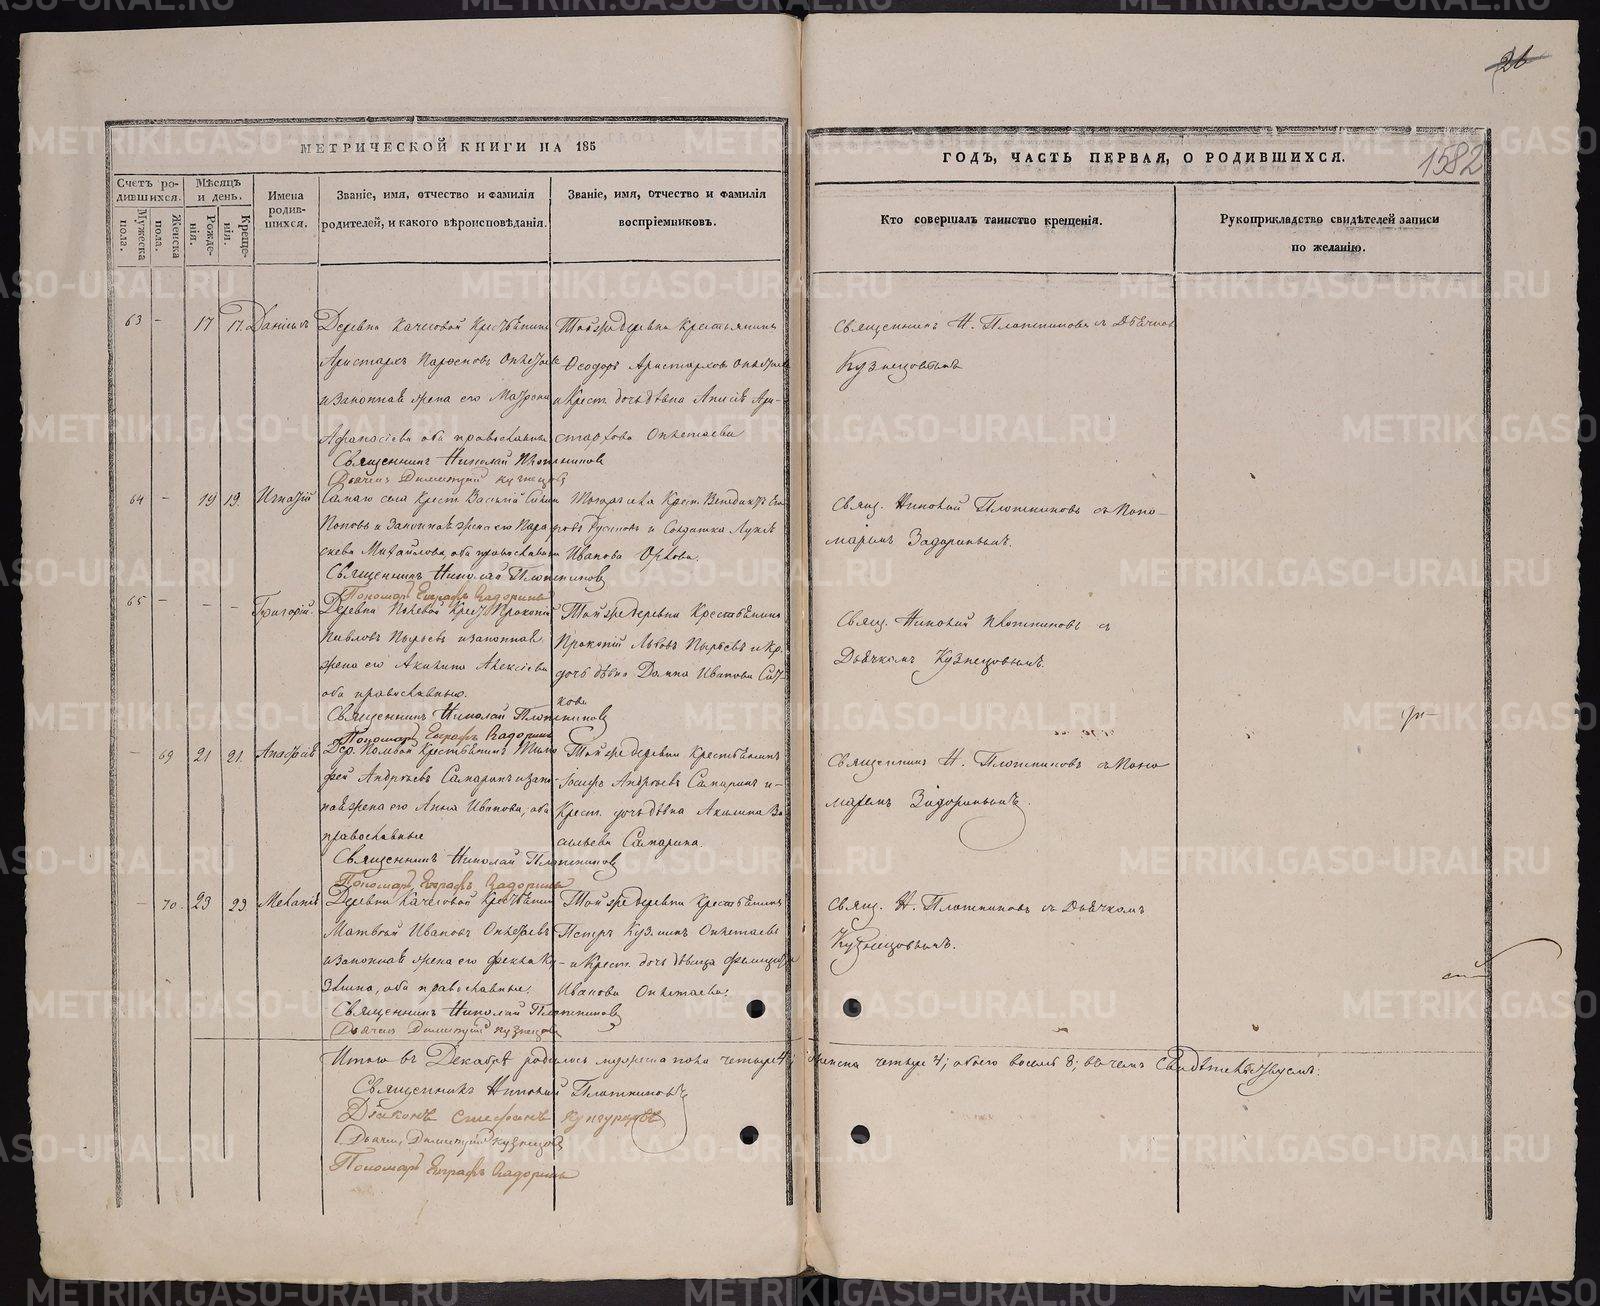 МЕТРИЧЕСКОЙ КНИГИ НА 185
Счетъ родившихся.
Мужеска пола.
Женска пола.
Мѣсяцъ и день.
Рожденія.
Крещенія.
Имена родившихся.
Званіе, имя, отчество и фамилія
родителей, и какого вѣроисповѣданія.
Званіе, имя, отчество и фамилія
воспріемниковъ.
63 - 17 17. Даніилъ
Деревни Крестьянинъ
Аристархъ Парѳеновъ
и законная жена его Матрона
Афанасіева оба православные
Священникъ Николай Плотниковъ
Дьячекъ Димитрий Кузнецовъ
Той же деревни Крестьянинъ
Ѳеодоръ Аристарховъ
и Крест. дочь дѣвка Анисія Ари-
стархова
64 - 19 19. Игнатій
Самаго села Крест. Василій
Поповъ и законная жена его Пара
скева Михайлова, оба православные
Священникъ Николай Плотниковъ
Пономарь Евграфъ Задоринъ
Того же села Крест. Венедиктъ
Русиновъ и Солдатка
Иванова Орлова.
65 - - - Григорій.
Деревни Крест. Прокопій
Павловъ Пырьевъ и законная
жена его Акилина Алексіева
оба православные.
Священникъ Николай Плотниковъ
Пономарь Евграфъ Задоринъ
Той же деревни Крестьянинъ
Прокопій Львовъ Пырьевъ и Кр.
дочь дѣвка Домна Иванова
кова
- 69 21 21. Анфиса
Дер. Крестьянинъ Тимо
фей Андреевъ Самаринъ и закон
ная жена его Анна Иванова, оба
православные
Священникъ Николай Плотниковъ
Пономарь Евграфъ Задоринъ
Той же деревни Крестьянинъ
Іосифъ Андреевъ Самаринъ и
Крест. дочь дѣвка Акилина Ва
сильева Самарина.
- 70. 23 23 Меланія
Деревни Крестьянинъ
Матвѣй Ивановъ
и законная жена его Фекла Ку
зьмина, оба православные.
Священникъ Николай Плотниковъ
Дьячекъ Димитрий Кузнецовъ
Той же деревни Крестьянинъ
Петръ Кузминъ
и Крест. дочь дѣвица
Иванова
Итого въ Декабрѣ родилось мужеска пола четыре 4; женска четыре 4; обоего восемь 8; въ чемъ Свидѣтельствуемъ:
Священникъ Николай Плотниковъ
Діаконъ Стефанъ Кунгуровъ
Дьячекъ Димитрий Кузнецовъ
Пономарь Евграфъ Задоринъ
26
1582
ГОДЪ, ЧАСТЬ ПЕРВАЯ, О РОДИВШИХСЯ.
Кто совершалъ таинство крещенія.
Рукоприкладство свидѣтелей записи
по желанію.
Священникъ Н. Плотниковъ съ Дьячкомъ
Кузнецовымъ
Свящ. Николай Плотниковъ съ Поно-
маремъ Задоринымъ.
Свящ. Николай Плотниковъ съ
Дьячкомъ Кузнецовымъ.
Священникъ Н. Плотниковъ съ Поно
маремъ Задоринымъ.
Свящ. Н. Плотниковъ съ Дьячкомъ
Кузнецовымъ.
METRIKI.GASO-URAL.RU